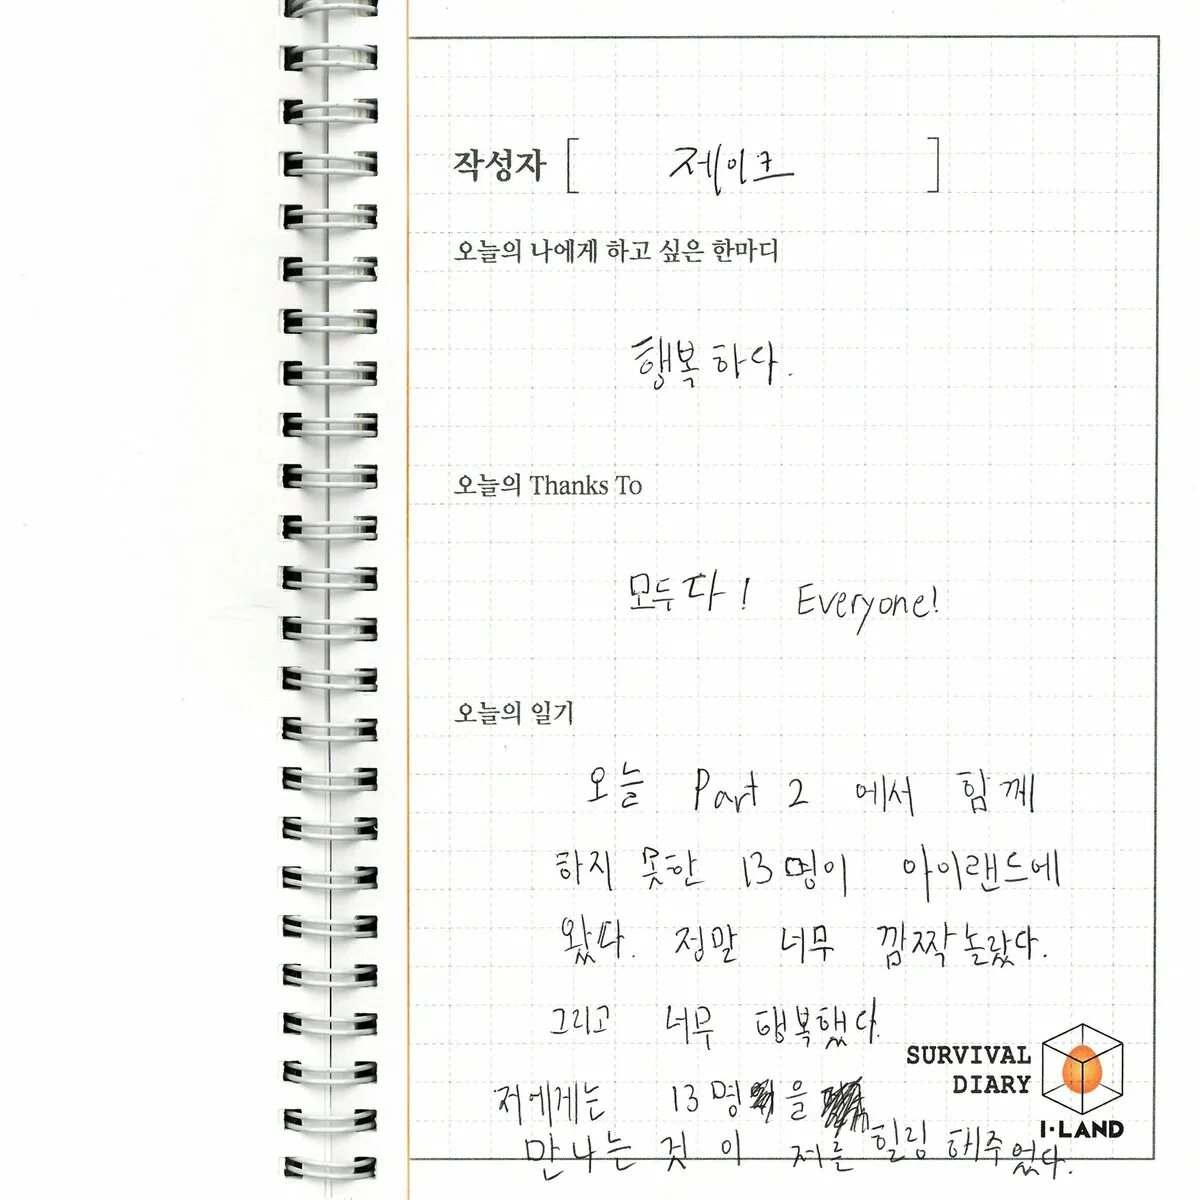 작성자 [ 제이크 ]
오늘의 나에게 하고 싶은 한마디
행복하다.
오늘의 Thanks To
모두다! Everyone!
오늘의 일기
오늘 Part 2 에서 함께
하지 못한 13명이 아이랜드에
왔다. 정말 너무 깜짝놀랐다.
그리고 너무 행복했다.
저에게는 13명을
만나는 것이 저를 힐링해주었다.
SURVIVAL
DIARY
I·LAND